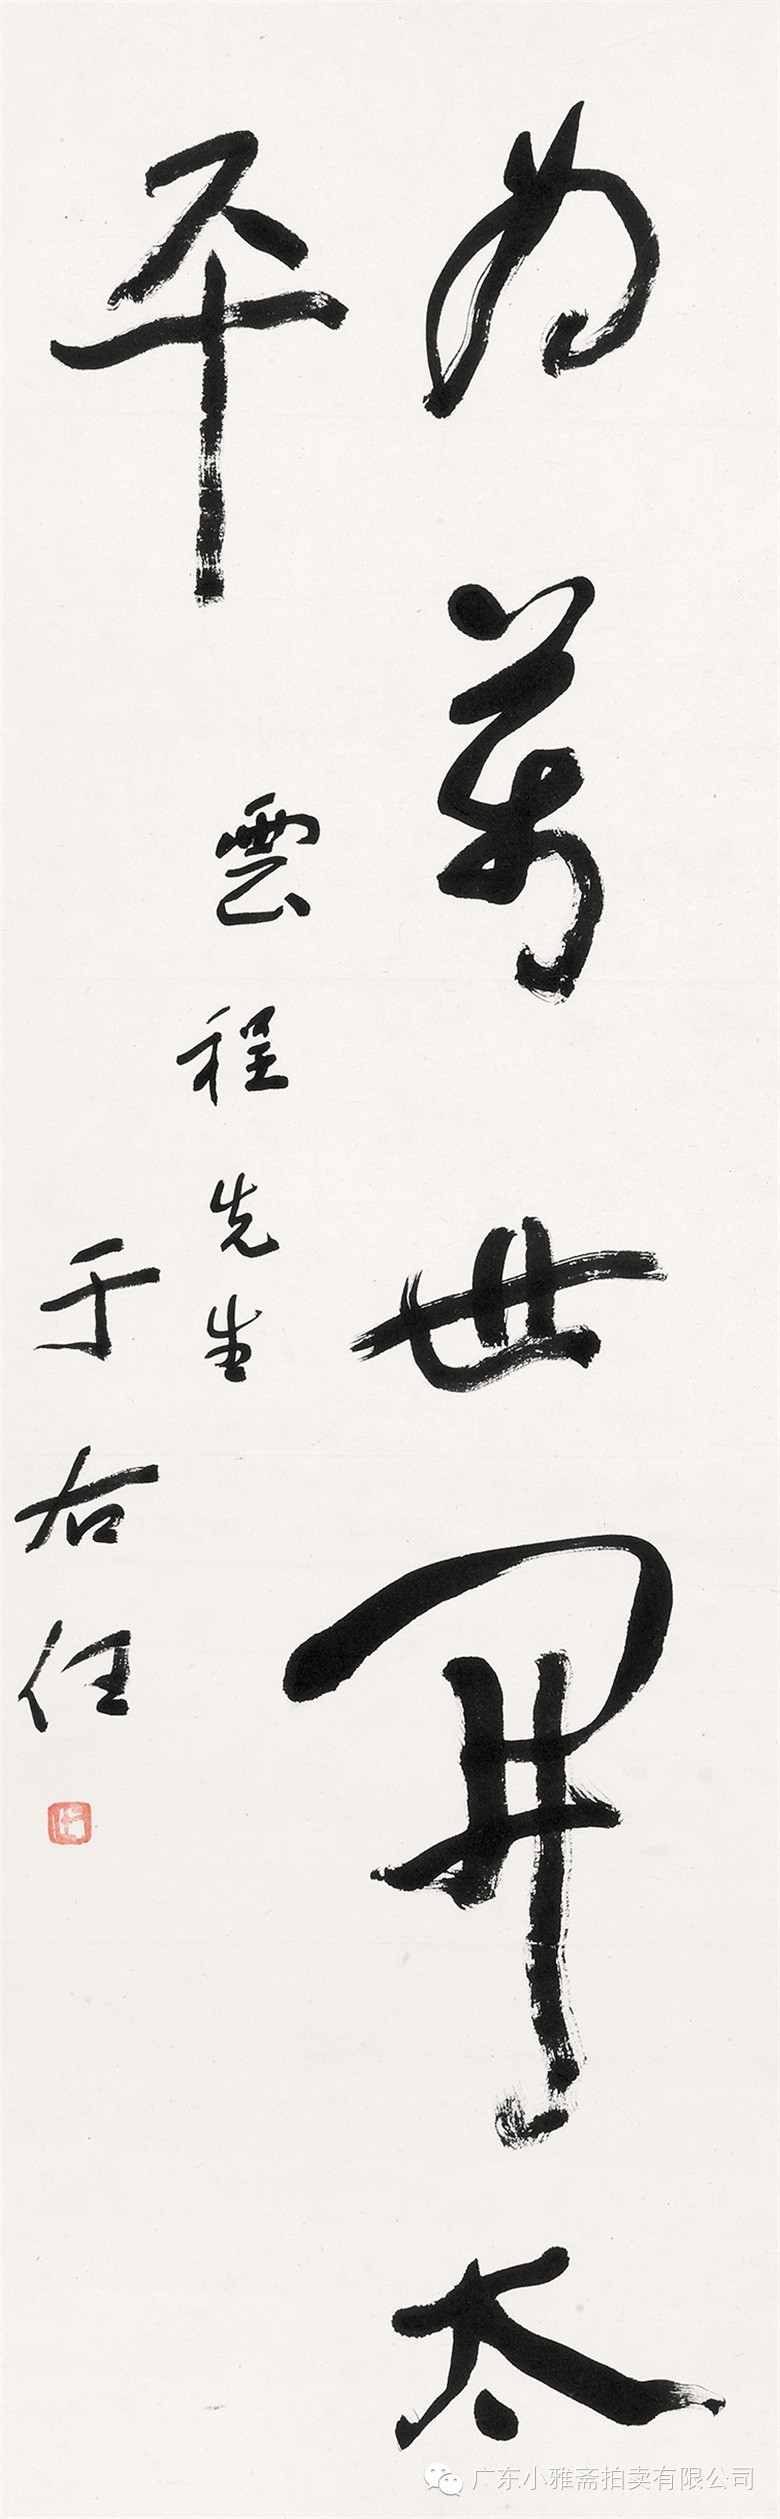 为萬世開太
平
雲程先生
于右任
广东小雅斋拍卖有限公司